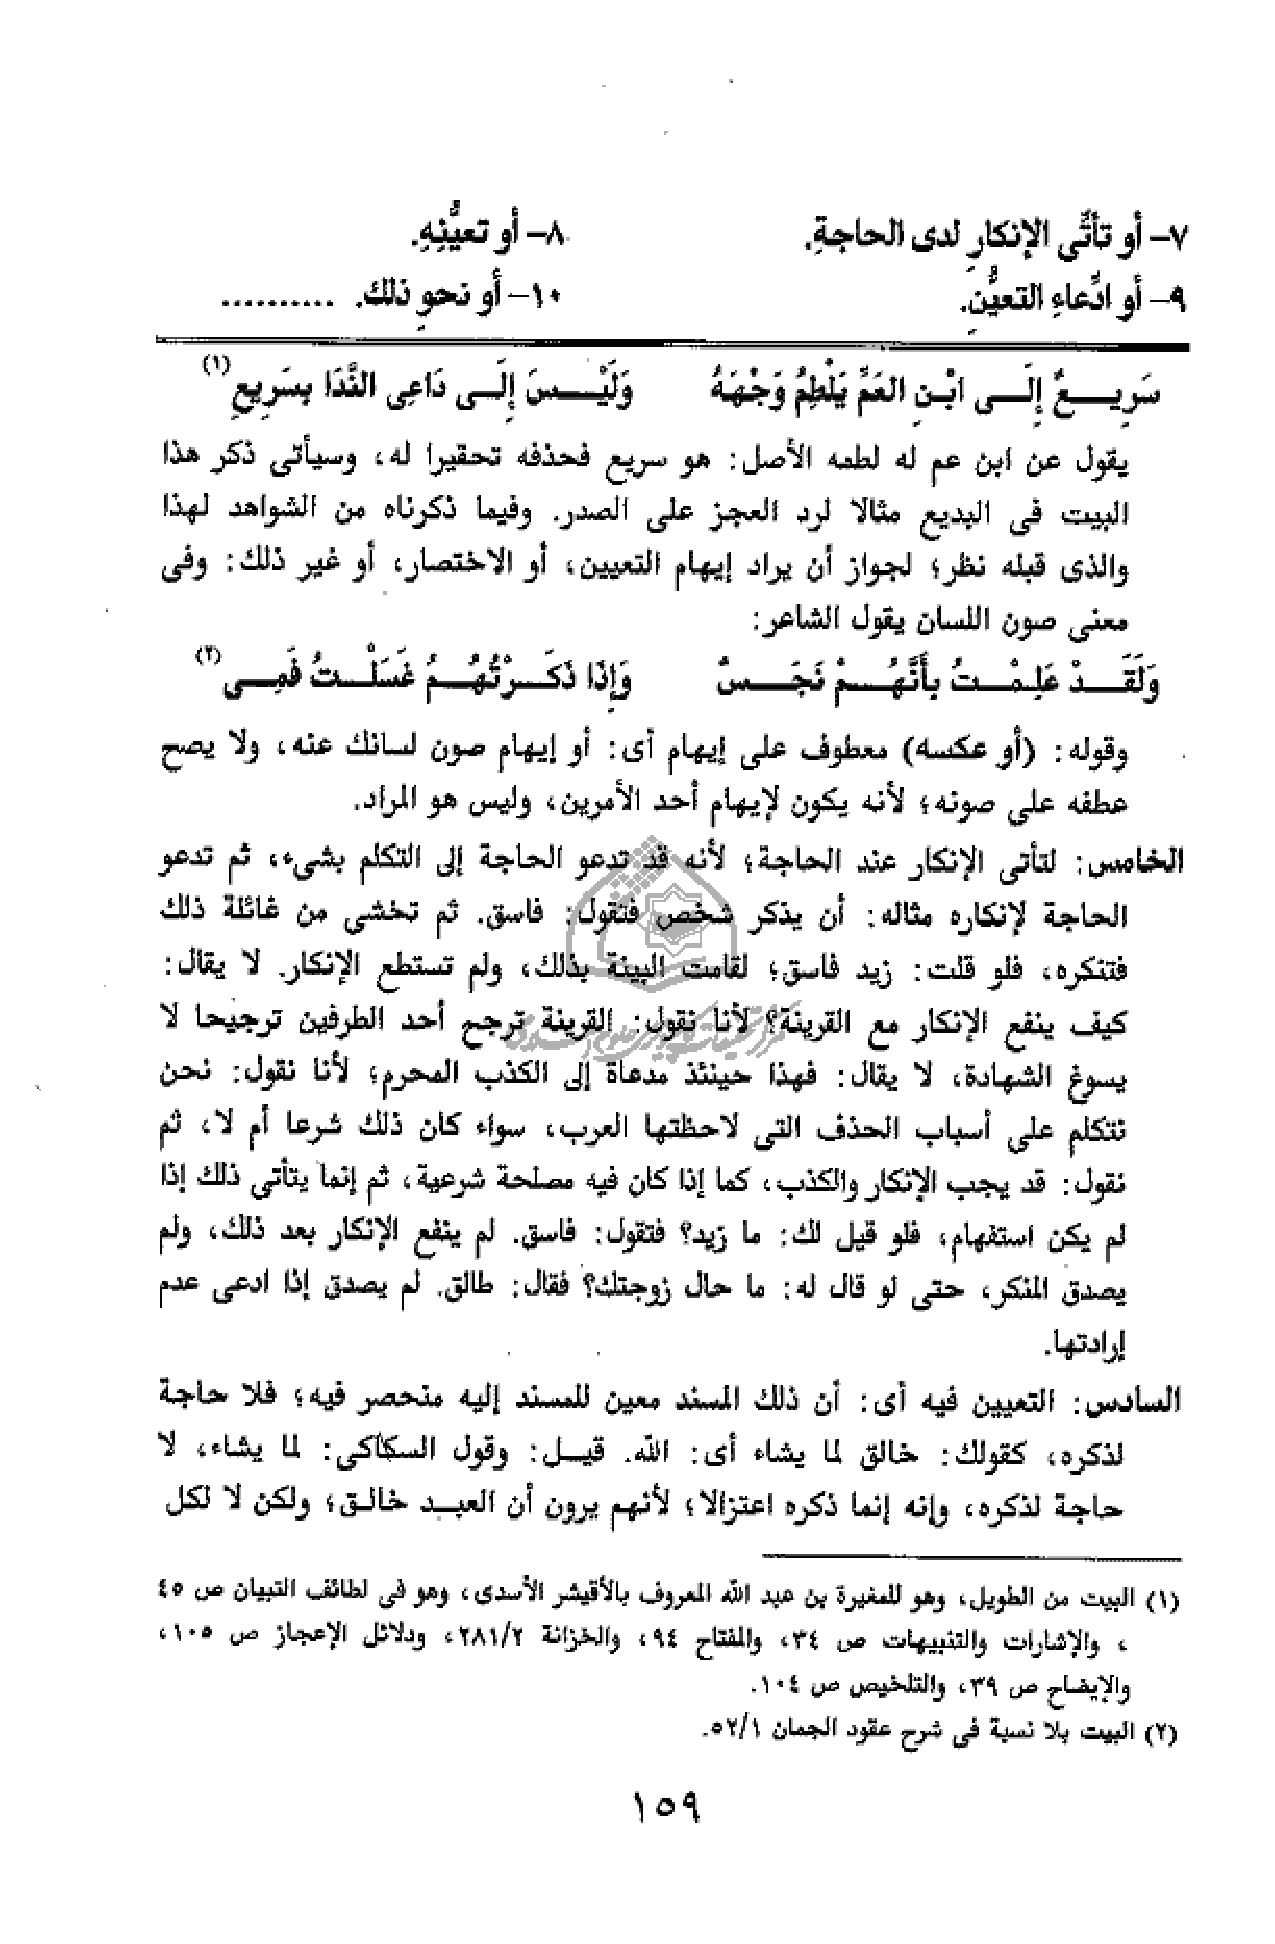 ٧- أو تأتَّى الإنكارِ لدى الحاجةِ. ٨- أو تعيُّنِهِ.
٩- أو ادِّعاءِ التعيُّنِ. ١٠- أو نحوِ ذلك. ..........
سَرِيعٌ إِلَى ابْنِ العَمِّ يَلْطِمُ وَجْهَهُ وَلَيْسَ إِلَى دَاعِى النَّدَا بِسَرِيعِ (١)
يقول عن ابن عم له لطمه الأصل: هو سريع فحذفه تحقيرا له، وسيأتى ذكر هذا
البيت فى البديع مثالا لرد العجز على الصدر. وفيما ذكرناه من الشواهد لهذا
والذى قبله نظر؛ لجواز أن يراد إيهام التعيين، أو الاختصار، أو غير ذلك: وفى
معنى صون اللسان يقول الشاعر:
وَلَقَدْ عَلِمْتُ بِأَنَّهُمْ نَجَسٌ وَإِذَا ذَكَرْتُهُمُ غَسَلْتُ فَمِى (٢)
وقوله: (أو عكسه) معطوف على إيهام أى: أو إيهام صون لسانك عنه، ولا يصح
عطفه على صونه؛ لأنه يكون لإيهام أحد الأمرين، وليس هو المراد.
الخامس: لتأتى الإنكار عند الحاجة؛ لأنه قد تدعو الحاجة إلى التكلم بشىء، ثم تدعو
الحاجة لإنكاره مثاله: أن يذكر شخص فتقول: فاسق. ثم تخشى من غائلة ذلك
فتنكره، فلو قلت: زيد فاسق؛ لقامت البينة بذلك، ولم تستطع الإنكار. لا يقال:
كيف ينفع الإنكار مع القرينة؟ لأنا نقول: القرينة ترجح أحد الطرفين ترجيحا لا
يسوغ الشهادة، لا يقال: فهذا حينئذ مدعاة إلى الكذب المحرم؛ لأنا نقول: نحن
نتكلم على أسباب الحذف التى لاحظتها العرب، سواء كان ذلك شرعا أم لا، ثم
نقول: قد يجب الإنكار والكذب، كما إذا كان فيه مصلحة شرعية، ثم إنما يتأتى ذلك إذا
لم يكن استفهام، فلو قيل لك: ما زيد؟ فتقول: فاسق. لم ينفع الإنكار بعد ذلك، ولم
يصدق المنكر، حتى لو قال له: ما حال زوجتك؟ فقال: طالق. لم يصدق إذا ادعى عدم
إرادتها.
السادس: التعيين فيه أى: أن ذلك المسند معين للمسند إليه منحصر فيه؛ فلا حاجة
لذكره، كقولك: خالق لما يشاء أى: الله. قيل: وقول السكاكى: لما يشاء، لا
حاجة لذكره، وإنه إنما ذكره اعتزالا؛ لأنهم يرون أن العبد خالق؛ ولكن لا لكل
(١) البيت من الطويل، وهو للمغيرة بن عبد الله المعروف بالأقيشر الأسدى، وهو فى لطائف التبيان ص ٤٥
، والإشارات والتنبيهات ص ٣٤، والمفتاح ٩٤، والخزانة ٢٨١/٢، ودلائل الإعجاز ص ١٠٥،
والإيضاح ص ٣٩، والتلخيص ص ١٠٤.
(٢) البيت بلا نسبة فى شرح عقود الجمان ٥٢/١.
١٥٩